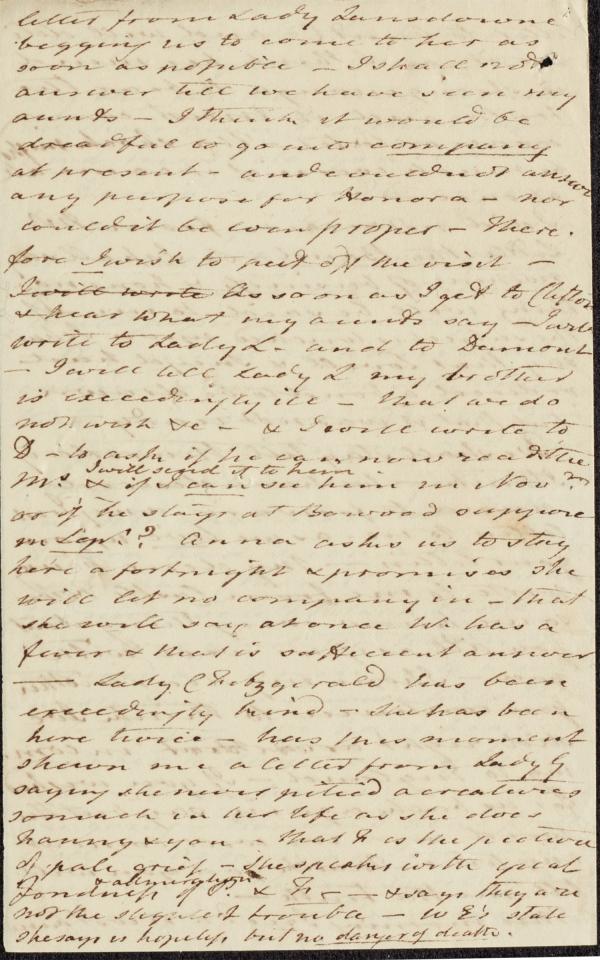 letter from Lady Lansdowne
begging us to come to her as
soon as possible – I shall not
answer till we have seen my
aunts – I think it would be
dreadful to go into company
at present – and could not answer
any purpose for Honora – nor
could it be even proper – There.
fore I wish to put off the visit –
I will write As soon as I get to Clifton
& hear what my aunts say – I will
write to Lady L– and to Dumont
– I will tell Lady L my brother
is exceedingly ill – that we do
not wish &c – & I will write to
D – to ask if he can now read the
I will send it to him
Ms & if I can see him in Novr
or if he stays at Bowood suppose
in Sepr? Anna asks us to stay
here a fortnight & promises she
will let no company in – that
she will say at once Wm has a
fever & that is sufficient answer
— Lady C Fitzgerald has been
exceedingly kind – She has been
here twice – has this moment
shewn me a letter from Lady G
saying she never pitied a creature
so much in her life as she does
Fanny & you – that F is the picture
of pale grief – She speaks with great
& admiration
fondness of & F – & says they are
not the slightest trouble – W E's state
she says is hopeless but no danger of death.